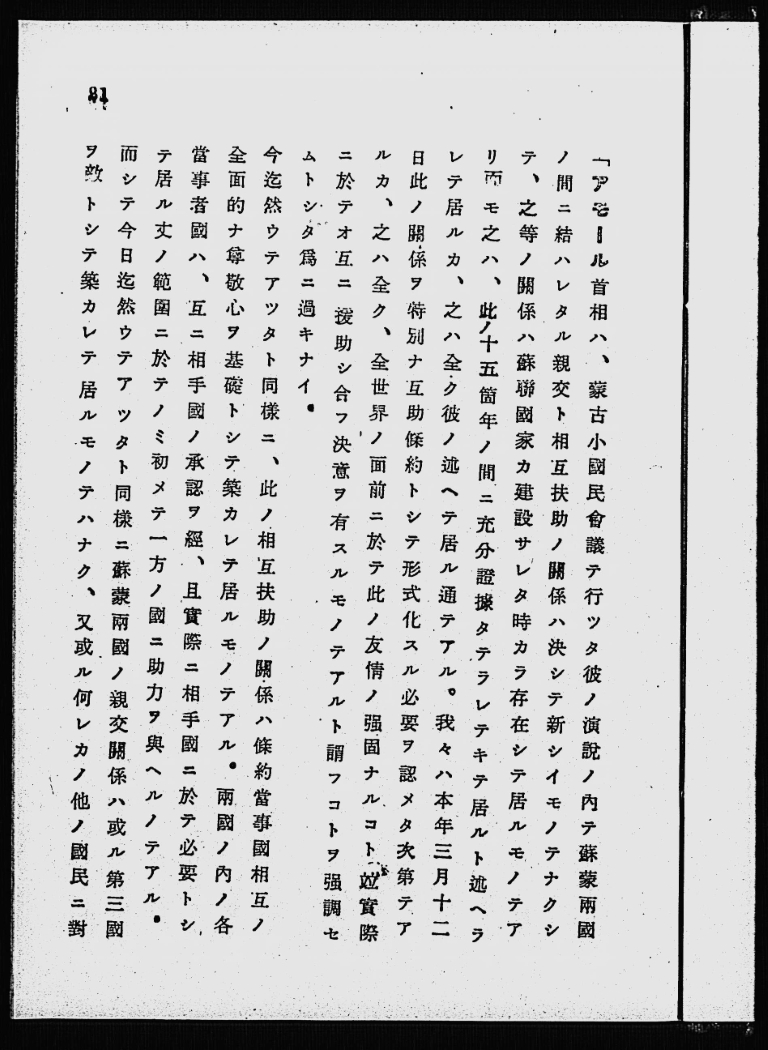 81
「アモール首相ハ、蒙古小國民會議テ行ツタ彼ノ演説ノ內テ蘇蒙兩國
ノ間ニ結ハレタル親交ト相互扶助ノ關係ハ決シテ新シイモノテナクシ
テ、之等ノ關係ハ蘇聯國家カ建設サレタ時カラ存在シテ居ルモノテア
リ而モ之ハ、此ノ十五箇年ノ間ニ充分證據タテラレテキテ居ルト述ヘラ
レテ居ルカ、之ハ全ク彼ノ述ヘテ居ル通テアル。我々ハ本年三月十二
日此ノ關係ヲ特別ナ互助條約トシテ形式化スル必要ヲ認メタ次第テア
ルカ、之ハ全ク、全世界ノ面前ニ於テ此ノ友情ノ强固ナルコト竝實際
ニ於テオ互ニ援助シ合フ決意ヲ有スルモノテアルト謂フコトヲ强調セ
ムトシタ爲ニ過キナイ。
今迄然ウテアツタト同樣ニ、此ノ相互扶助ノ關係ハ條約當事國相互ノ
全面的ナ尊敬心ヲ基礎トシテ築カレテ居ルモノテアル。兩國ノ內ノ各
當事者國ハ、互ニ相手國ノ承認ヲ經、且實際ニ相手國ニ於テ必要トシ
テ居ル丈ノ範圍ニ於テノミ初メテ一方ノ國ニ助力ヲ與ヘルノテアル。
而シテ今日迄然ウテアツタト同樣ニ蘇蒙兩國ノ親交關係ハ或ル第三國
ヲ敵トシテ築カレテ居ルモノテハナク、又或ル何レカノ他ノ國民ニ對